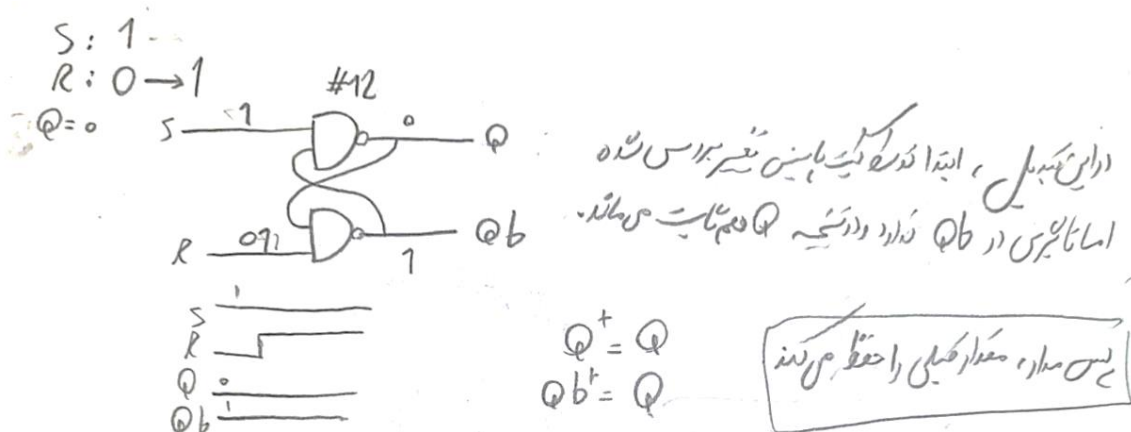 S: 1
R: 0 → 1
Q=0
#12
S 1 0 Q
R 0 1 1 Qb
در این تبدیل، ابتدا توسط گیت پایینی تغییر بررسی شده
اما تاثیری در Qb ندارد و در نتیجه Q هم ثابت می ماند.
S 1
R
Q 0
Qb 1
Q⁺ = Q
Qb⁺ = Q
پس مدار، مقدار قبلی را حفظ می کند